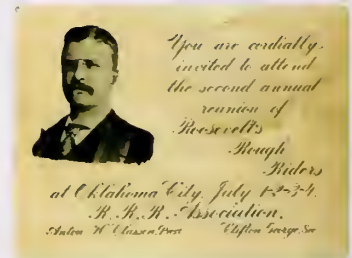 You are cordially
invited to attend
the second annual
reunion of
Roosevelt's
Rough
Riders
at Oklahoma City, July 1-2-3-4.
R. R. R. Association.
Anton H Classen, Pres Clifton George, Sec